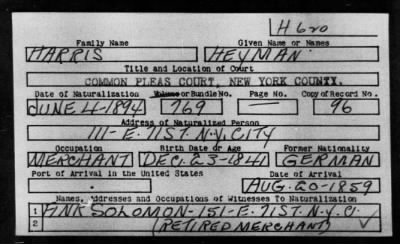 H 620
Family Name Given Name or Names
HARRIS HEYMAN
Title and Location of Court
COMMON PLEAS COURT, NEW YORK COUNTY.
Date of Naturalization Volume or Bundle No. Page No. Copy of Record No.
JUNE 4-1894 769 — 96
Address of Naturalized Person
111-E. 71ST. N.Y. CITY
Occupation Birth Date or Age Former Nationality
MERCHANT DEC. 23-1841 GERMAN
Port of Arrival in the United States Date of Arrival
- AUG. 20-1859
Names, Addresses and Occupations of Witnesses To Naturalization
1 FINK SOLOMON-151-E. 71ST. N.Y.C.
2 (RETIRED MERCHANT)